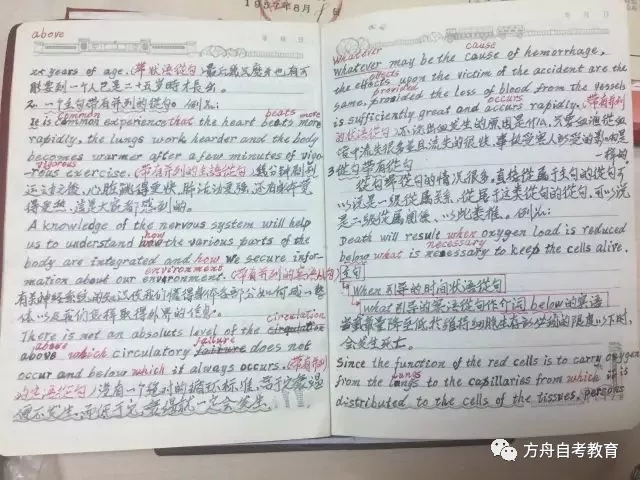 1957年8月
above
25 years of age. (带状语從句)
能要到一个人已是二十五岁時才長出。
2. 一个主句带有并列的從句。例如:
common beats more
It is common experience that the heart beats more
rapidly, the lungs work hearder and the body
becomes warmer after a few minutes of vigo-
vigorous
rous exercise. (带有并列的主語從句)
还过之後, 心脏跳得更快, 肺活动更强, 还有身体覚
得更热, 這是大家都感到的。
A knowledge of the nervous system will help
how
us to understand how the various parts of the
body are integrated and how we secure infor-
environment
mation about our environment. (带有并列的賓語從句)
有关神经系统的知识使我们懂得身体各部分如何成一整
体以及我们怎样取得外界的信息。
circulation
There is not an absolute level of the circulation
above failure
above which circulatory failure does not
occur and below which it always occurs. (带有并列
的定語從句) 没有一个绝对的循环标准, 高于它衰竭
便不发生, 而低于它, 衰竭就一定会发生.
whatever cause
whatever may be the cause of hemorrhage,
effects
the effects upon the victim of the accident are the
same, provided the loss of blood from the vessels
occurs
is sufficiently great and occurs rapidly. (带有并列
的状語從句) 不论出血发生的原因是什么, 只要血液從血
管中流失很多並且流失的很快, 事故受害人所受的影响是
一样的
3 從句带有從句
從句带從句的情况很多, 直接從属于主句的從句可
以说是一级從属关系, 從属于这类從句的從句, 可以说
是二级從属関係, 以此类推。例如:
Death will result when oxygen load is reduced
necessary
below what is necessary to keep the cells alive.
主句
when引导的时间状語從句
what引导的賓語從句作介词 below的賓語
当载氧量降至低於維持细胞生存所必须的限度以下时,
会发生死亡。
Since the function of the red cells is to carry oxygen
lungs
from the lungs to the capillaries from which it is
distributed to the cells of the tissues, persons
方舟自考教育